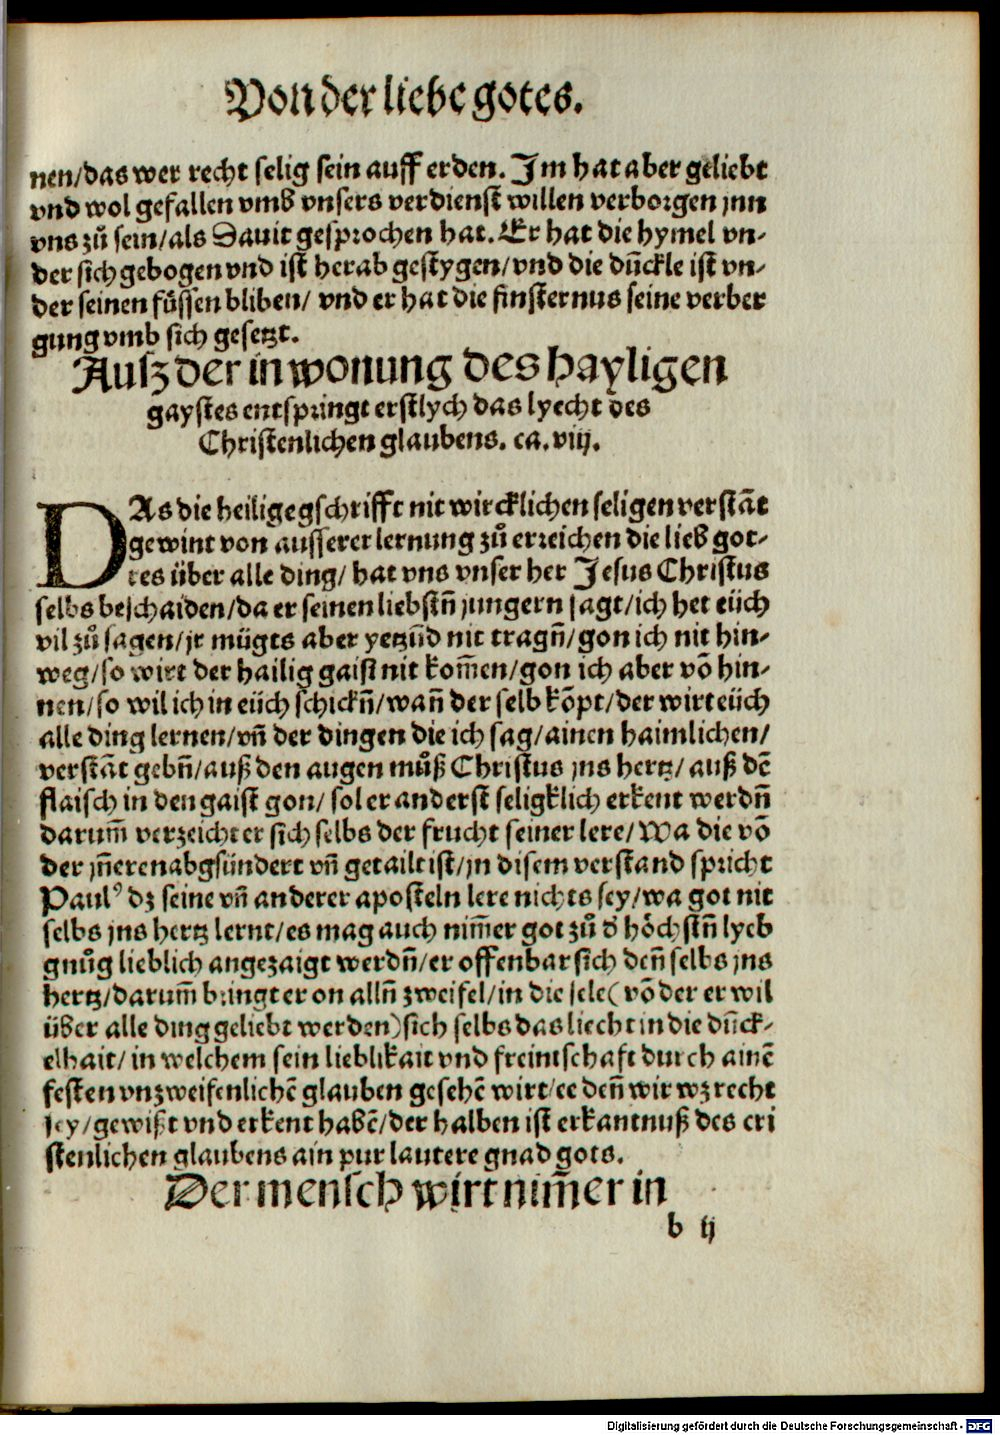 Von der liebe gotes.
nen/das wer recht selig sein auff erden. Im hat aber geliebt
vnd wol gefallen vmb vnsers verdienst willen verborgen jnn
vns zů sein/als Dauit gesprochen hat. Er hat die hymel vn-
der sich gebogen vnd ist herab gestygen/vnd die dũckle ist vn-
der seinen füssen bliben/ vnd er hat die finsternus seine verber
gung vmb sich gesetzt.
Ausz der inwonung des hayligen
gaystes entspringt erstlych das lyecht des
Christenlichen glaubens. ca. viij.
DAs die heilige gschrifft nit wircklichen seligen verstãt
gewint von ausserer lernung zů erreichen die lieb got-
tes über alle ding/ hat vns vnser her Jesus Christus
selbs beschaiden/da er seinen liebstñ jungern sagt/ich het eüch
vil zů sagen/jr mügts aber yetzũd nit tragñ/gon ich nit hin-
weg/so wirt der hailig gaist nit kom̃en/gon ich aber võ hin-
nen/so wil ich in eüch schickñ/wañ der selb kõpt/der wirt eüch
alle ding lernen/vñ der dingen die ich sag/ainen haimlichen/
verstãt gebñ/auß den augen můß Christus jns hertz/ auß dẽ
flaisch in den gaist gon/ sol er anderst seligklich erkent werdñ
darum̃ verzeicht er sich selbs der frucht seiner lere/ Wa die võ
der jñeren abgsündert vñ getailt ist/jn disem verstand spricht
Paulꝰ dz seine vñ anderer aposteln lere nichts sey/wa got nit
selbs jns hertz lernt/es mag auch nim̃er got zů d̕ höchstñ lyeb
gnůg lieblich angezaigt werdñ/er offenbar sich deñ selbs jns
hertz/darum̃ bringt er on allñ zweifel/in die sele( võ der er wil
über alle ding geliebt werden) sich selbs das liecht in die dũck-
elhait/ in welchem sein lieblikait vnd freintschaft durch ainẽ
festen vnzweifenlichẽ glauben gesehẽ wirt/ee deñ wir wz recht
sey/gewißt vnd erkent habẽ/der halben ist erkantnuß des cri
stenlichen glaubens ain pur lautere gnad gots.
Der mensch wirt nim̃er in
b ij
Digitalisierung gefördert durch die Deutsche Forschungsgemeinschaft - DFG